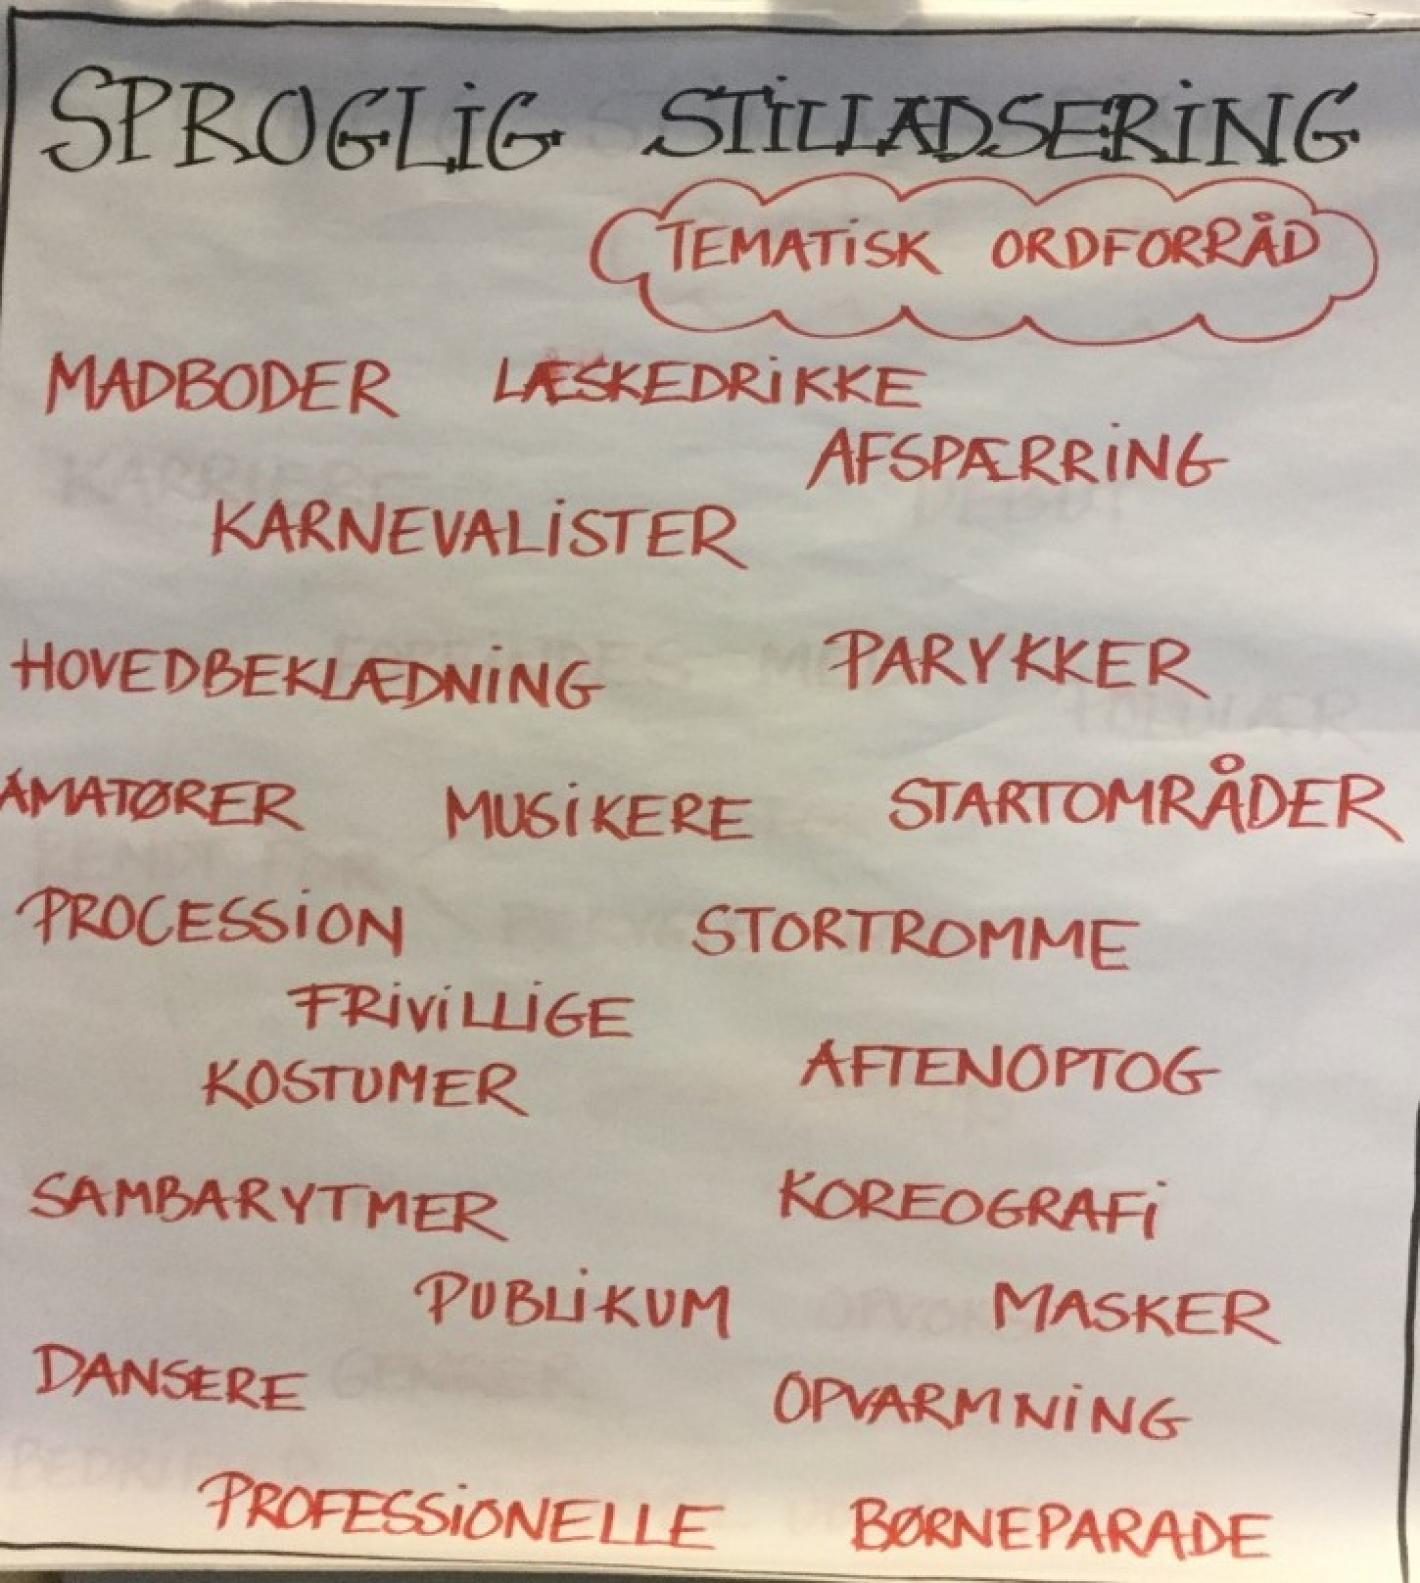 SPROGLIG STILLADSERING
TEMATISK ORDFORRÅD
MADBODER LÆSKEDRIKKE
AFSPÆRRING
KARNEVALISTER
HOVEDBEKLÆDNING PARYKKER
AMATØRER MUSIKERE STARTOMRÅDER
PROCESSION STORTROMME
FRIVILLIGE
KOSTUMER AFTENOPTOG
SAMBARYTMER KOREOGRAFI
PUBLIKUM MASKER
DANSERE OPVARMNING
PROFESSIONELLE BØRNEPARADE